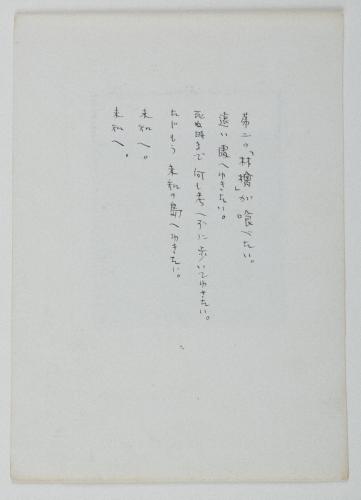 第二の「林檎」が喰べたい。
遠い處へゆきたい。
死ぬ時まで何も考へずに歩いてゆきたい。
たゞもう未知の島へゆきたい。
未知へ。
未知へ。